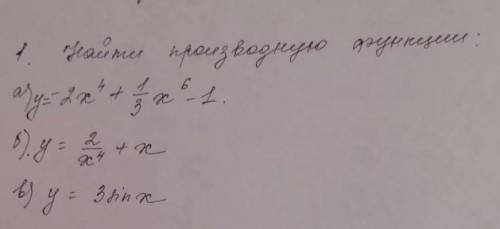 1. Найти производную функции:
а) y = -2x⁴ + 1/3 x⁶ - 1.
б). y = 2/x⁴ + x
в) y = 3sinx